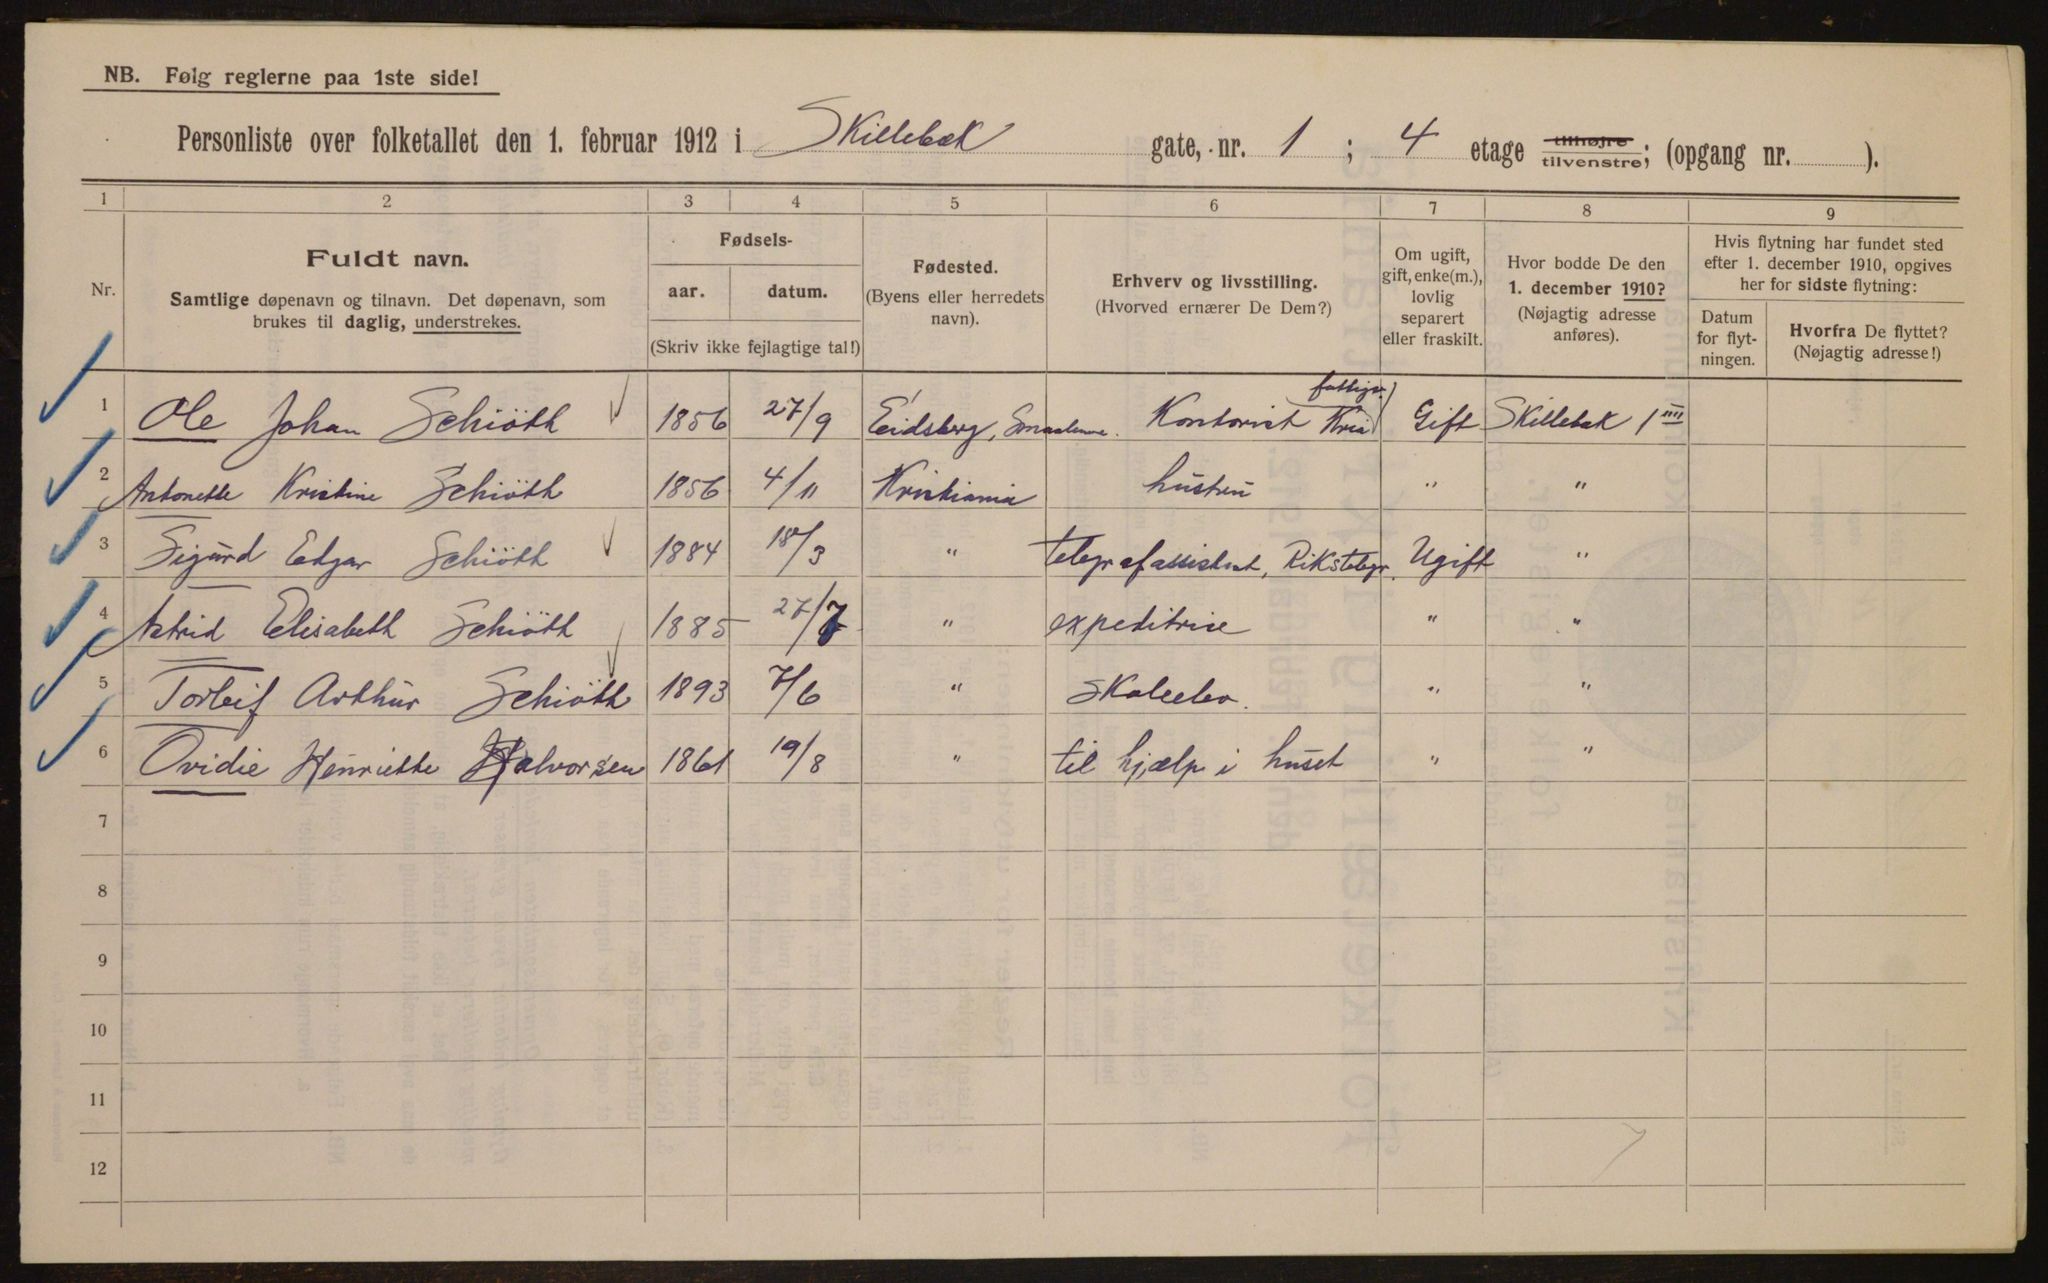 NB. Følg reglerne paa 1ste side!
Personliste over folketallet den 1. februar 1912 i Skillebæk gate, nr. 1 ; 4 etage tilhøjre tilvenstre; (opgang nr. ).
1 2 3 4 5 6 7 8 9
Nr.
Fuldt navn.
Samtlige døpenavn og tilnavn. Det døpenavn, som
brukes til daglig, understrekes.
Fødsels-
aar. datum.
(Skriv ikke fejlagtige tal!)
Fødested.
(Byens eller herredets
navn).
Erhverv og livsstilling.
(Hvorved ernærer De Dem?)
Om ugift,
gift, enke(m.),
lovlig
separert
eller fraskilt.
Hvor bodde De den
1. december 1910?
(Nøjagtig adresse
anføres).
Hvis flytning har fundet sted
efter 1. december 1910, opgives
her for sidste flytning:
Datum
for flyt-
ningen.
Hvorfra De flyttet?
(Nøjagtig adresse!)
1 Ole Johan Schiöth 1856 27/9 Eidsberg, Smaalenene. Kontorist Kria Gift Skillebæk 1
2 Antonette Kristine Schiöth 1856 4/11 Kristiania hustru " "
3 Sigurd Edgar Schiöth 1884 18/3 " telegrafassistent, Rikstelegr. Ugift "
4 Astrid Elisabeth Schiöth 1885 27/7 " expeditrise " "
5 Torleif Arthur Schiöth 1893 7/6 " Skoleelev. " "
6 Ovidie Henriette Halvorsen 1861 19/8 " til hjælp i huset " "
7
8
9
10
11
12